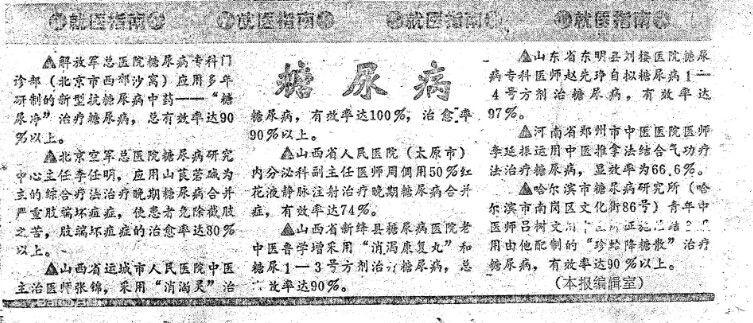 就医指南 就医指南 就医指南 就医指南
糖尿病
▲解放军总医院糖尿病专科门
诊部（北京市西郊沙窝）应用多年
研制的新型抗糖尿病中药——“糖
尿净”治疗糖尿病，总有效率达90
%以上。
▲北京空军总医院糖尿病研究
中心主任李任明，应用山莨菪碱为
主的综合疗法治疗晚期糖尿病合并
严重肢端坏疽症，使患者免除截肢
之苦，肢端坏疽症的治愈率达80%
以上。
▲山西省运城市人民医院中医
主治医师张锦，采用“消渴灵”治
糖尿病，有效率达100%，治愈率
90%以上。
▲山西省人民医院（太原市）
内分泌科副主任医师周倜用50%红
花液静脉注射治疗晚期糖尿病合并
症，有效率达74%。
▲山西省新绛县糖尿病医院老
中医鲁学增采用“消渴康复丸”和
糖尿1—3号方剂治疗糖尿病，总
有效率达90%。
▲山东省东明县刘楼医院糖尿
病专科医师赵先玲自拟糖尿病1—
4号方剂治糖尿病，有效率达
97%。
▲河南省郑州市中医医院医师
李延振运用中医推拿法结合气功疗
法治疗糖尿病，显效率为66.6%。
▲哈尔滨市糖尿病研究所（哈
尔滨市南岗区文化街86号）青年中
医师吕树文
用由他配制的“珍蛤降糖散”治疗
糖尿病，有效率达90%以上。
（本报编辑室）